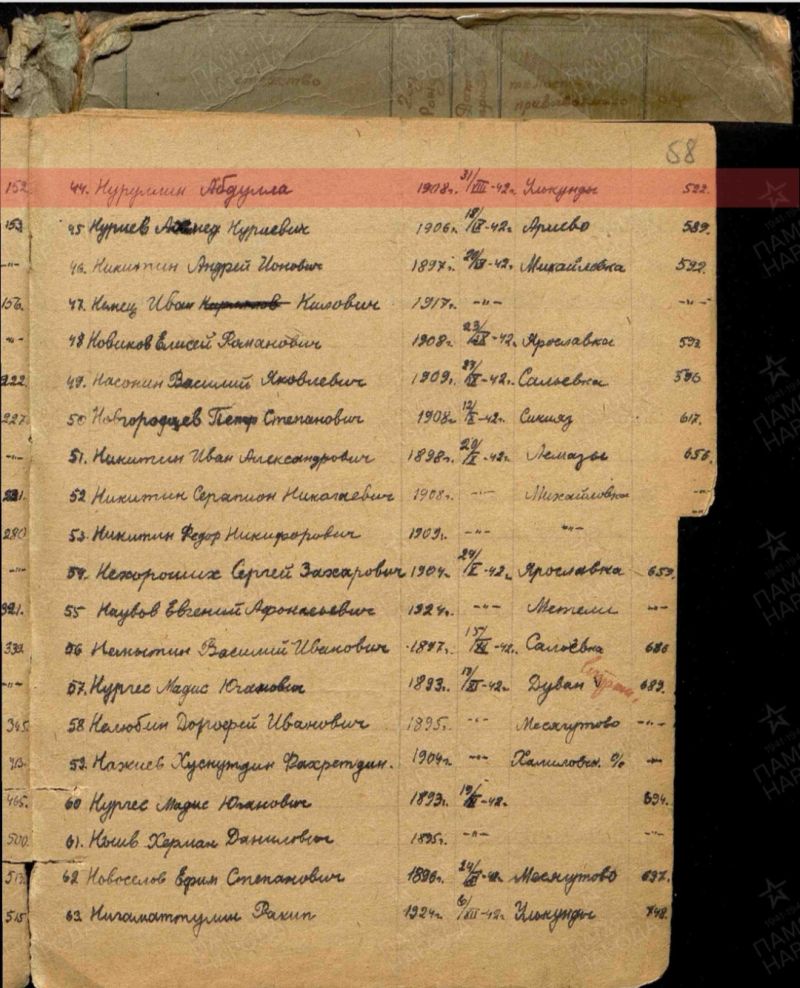 58
152 44. Нуруллин Абдулла 1908г. 31/VIII-42г. Улькунды 522.
153. 45 Нуриев Ахмед Нуриевич 1906г. 18/IX-42г. Ариево 589.
-"- 46. Никитин Андрей Ионович 1897г. 20/IX-42г. Михайловка 592.
156. 47. Немец Иван Килович 1917г. -"- -"-
-"- 48 Новиков Елисей Романович 1908г. 23/IX-42г. Ярославка 593
222. 49. Насонин Василий Яковлевич 1909г. 27/IX-42г. Сальевка 596
227. 50 Новгородцев Петр Степанович 1908г. 12/X-42г. Сикияз 617.
-"- 51. Никитин Иван Александрович 1898г. 20/X-42г. Лемазы 656.
52 Никитин Серапион Николаевич 1908г. -"- Михайловка -"-
280 53. Никитин Федор Никифорович 1909г. -"- "-
-"- 54. Нехороших Сергей Захарович 1904г. 24/X-42г. Ярославка 659.
321. 55 Наувов Евгений Афонасьевич 1924г. -"- Метели -"-
339. 56 Василий Иванович 1897г. 15/XI-42г. Сальевка 686
-"- 57. Нургес Мадис Юганович 1893г. 18/XI-42г. Дуван 689.
345 58 Нелюбин Дорофей Иванович 1895г. -"- Месягутово -"-
413. 59. Нажиев Хуснутдин Фахретдин. 1904г. -"- Халиловск. с/с -"-
465. 60 Нургес Мадис Юганович 1893г. 19/XI-42г. 694.
500. 61. Херман Данилович 1895г. -"- -"-
513. 62 Новоселов Ефим Степанович 1896г. 24/XI-42г. Месягутово 697.
515 63. Нигаматтулин Ракип 1924г. 6/XII-42г. Улькунды 748.
ПАМЯТЬ НАРОДА